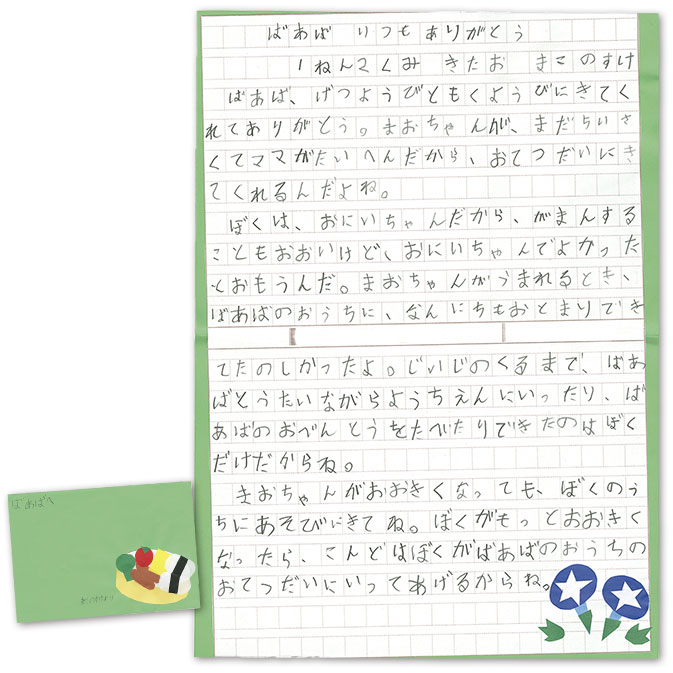 ばあば いつも ありがとう
1ねん2くみ きたお まさのすけ
ばあば、げつようびともくようびにきてく
れてありがとう。まおちゃんが、まだちいさ
くてママがたいへんだから、おてつだいにき
てくれるんだよね。
ぼくは、おにいちゃんだから、がまんする
こともおおいけど、おにいちゃんでよかった
とおもうんだ。まおちゃんがうまれるとき、
ばあばのおうちに、なんにちもおとまりでき
てたのしかったよ。じいじのくるまで、ばあ
ばとうたいながらようちえんにいったり、ば
あばのおべんとうをたべたりできたのはぼく
だけだからね。
まおちゃんがおおきくなっても、ぼくのう
ちにあそびにきてね。ぼくがもっとおおきく
なったら、こんどはぼくがばあばのおうちの
おてつだいにいってあげるからね。
ばあばへ